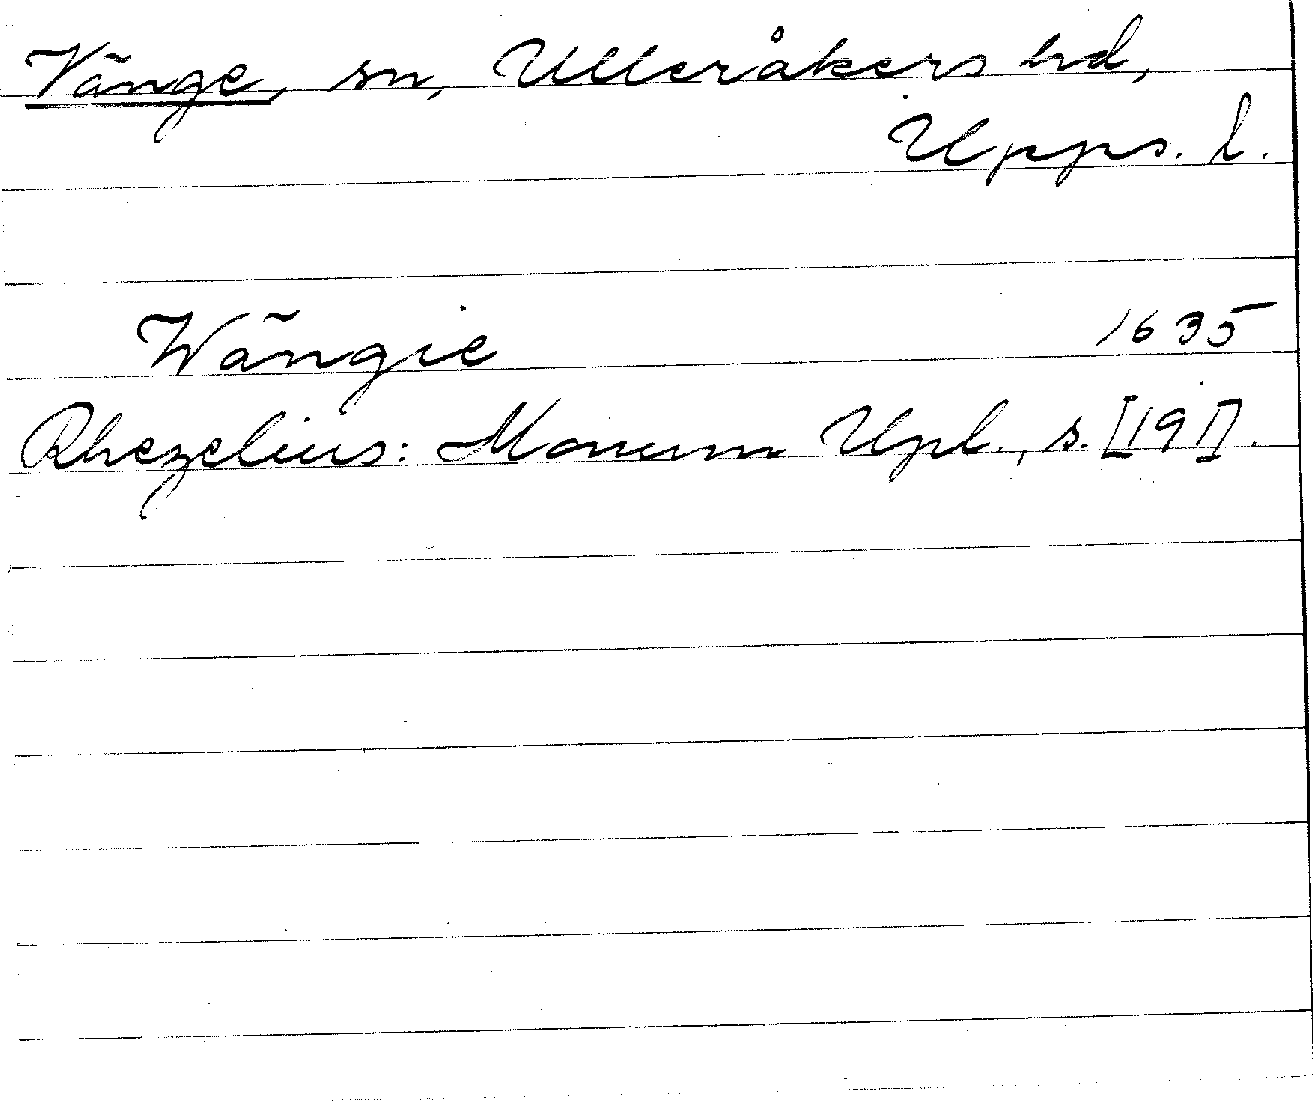 Vänge, sn, Ulleråkers hd,
Upps. l.
Wängie 1635
Rhezelius: Monum Upl., s. [191].